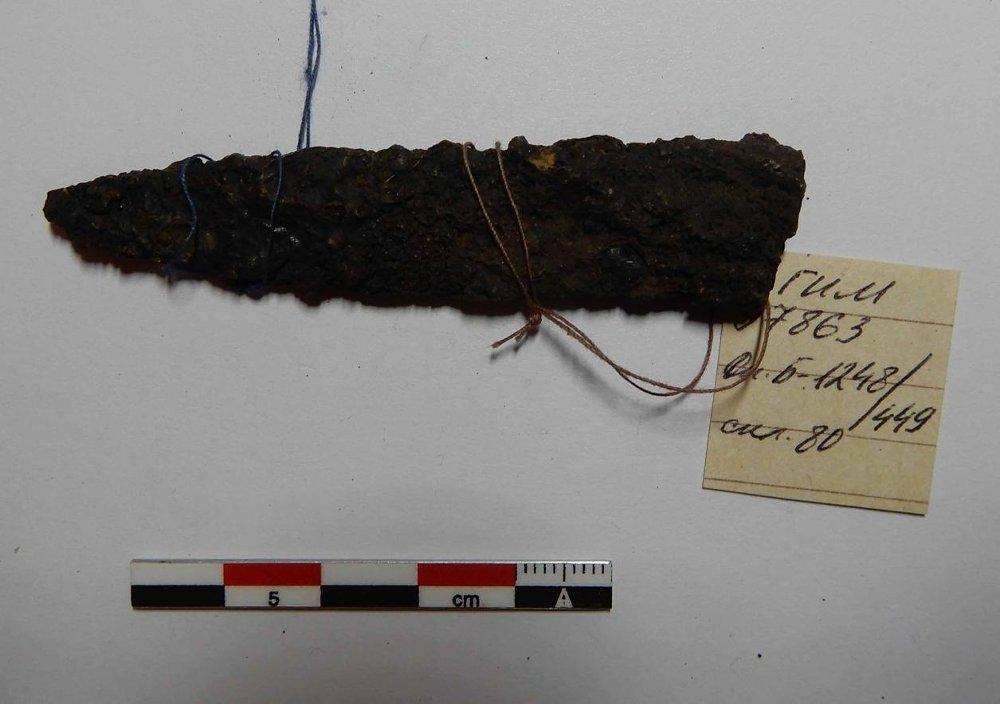 ГИМ
7863
Оп. Б-1248/
/449
скл. 80
5 cm
A